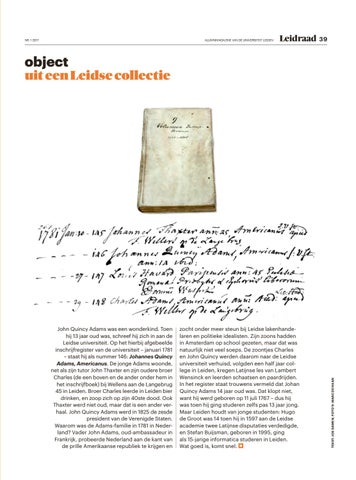 NR. 1 2017
ALUMNIMAGAZINE VAN DE UNIVERSITEIT LEIDEN Leidraad 39
object
uit een Leidse collectie
1781 Jan. 30 - 145 Johannes Thaxter ann. 25 Americanus apud
F. Wellers op de Langebrug
146 Johannes Quincy Adams, Americanus
27 - 147
29 - 148 Charles Adams, Americanus apud
F. Wellers op de Langebrug.
John Quincy Adams was een wonderkind. Toen
hij 13 jaar oud was, schreef hij zich in aan de
Leidse universiteit. Op het hierbij afgebeelde
inschrijfregister van de universiteit – januari 1781
– staat hij als nummer 146: Johannes Quincy
Adams, Americanus. De jonge Adams woonde,
net als zijn tutor John Thaxter en zijn oudere broer
Charles (de een boven en de ander onder hem in
het inschrijfboek) bij Wellens aan de Langebrug
45 in Leiden. Broer Charles leerde in Leiden bier
drinken, en zoop zich op zijn 40ste dood. Ook
Thaxter werd niet oud, maar dat is een ander ver-
haal. John Quincy Adams werd in 1825 de zesde
president van de Verenigde Staten.
Waarom was de Adams-familie in 1781 in Neder-
land? Vader John Adams, oud-ambassadeur in
Frankrijk, probeerde Nederland aan de kant van
de prille Amerikaanse republiek te krijgen en
zocht onder meer steun bij Leidse lakenhande-
laren en politieke idealisten. Zijn zoons hadden
in Amsterdam op school gezeten, maar dat was
natuurlijk niet veel soeps. De zoontjes Charles
en John Quincy werden daarom naar de Leidse
universiteit verhuisd, volgden een half jaar col-
lege in Leiden, kregen Latijnse les van Lambert
Wensinck en leerden schaatsen en paardrijden.
In het register staat trouwens vermeld dat Johan
Quincy Adams 14 jaar oud was. Dat klopt niet,
want hij werd geboren op 11 juli 1767 – dus hij
was toen hij ging studeren zelfs pas 13 jaar jong.
Maar Leiden houdt van jonge studenten: Hugo
de Groot was 14 toen hij in 1597 aan de Leidse
academie twee Latijnse disputaties verdedigde,
en Stefan Buijsman, geboren in 1995, ging
als 15-jarige informatica studeren in Leiden.
Wat goed is, komt snel.